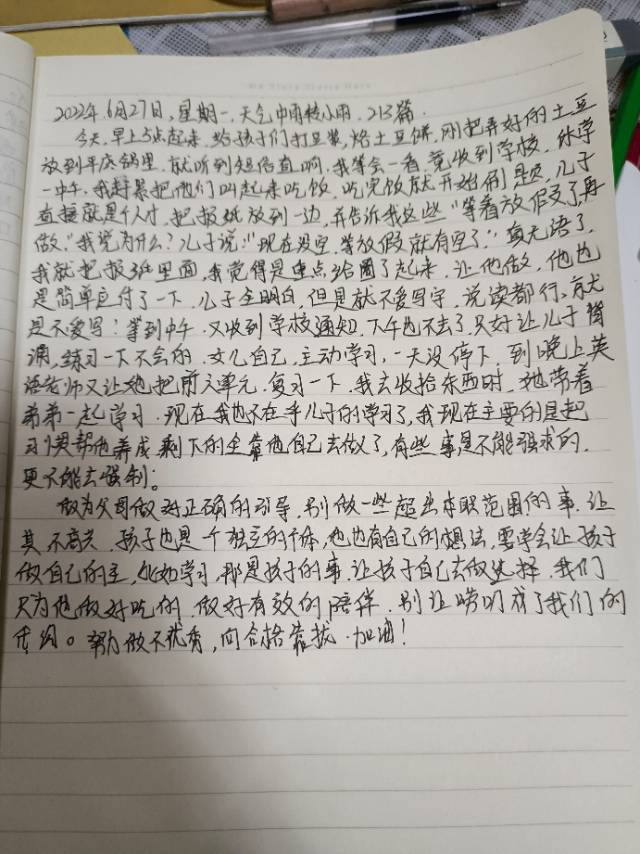 2022年6月27日,星期一,天气中雨转小雨. 213篇.
今天,早上5点起来.给孩子们打豆浆,烙土豆饼,刚把弄好的土豆
放到平底锅里.就听到短信直响.我等会一看竟收到学校,休学
一中午.我赶紧把他们叫起来吃饭.吃完饭就开始刷题.儿子
直接就是个人才,把报纸放到一边,并告诉我这些"等着放假了,再
做."我说为什么?儿子说:"现在没空,等放假就有空了."真无语了.
我就把报纸里面,我觉得是重点,给圈了起来.让他做,他也
是简单应付了一下.儿子全明白,但是就不爱写字,说读都行,就
是不爱写!等到中午.又收到学校通知.下午也不去了.只好让儿子背
诵,练习一下不会的.女儿自己,主动学习,一天没停下.到晚上英
语老师又让她把前六单元.复习一下.我去收拾东西时.她带着
弟弟一起学习.现在我也不在乎儿子的学习了,我现在主要的是把
习惯帮他养成剩下的全靠他自己去做了,有些事是不能强求的.
更不能去强制;
做为父母做对正确的引导.别做一些超出本职范围的事.让
其不高兴.孩子也是一个独立的个体,他也有自己的想法,要学会让孩子
做自己的主,比如学习,那是孩子的事.让孩子自己去做选择.我们
只为他做好吃的.做好有效的陪伴.别让唠叨成了我们的
代沟。努力做不优秀,向合格靠拢.加油!